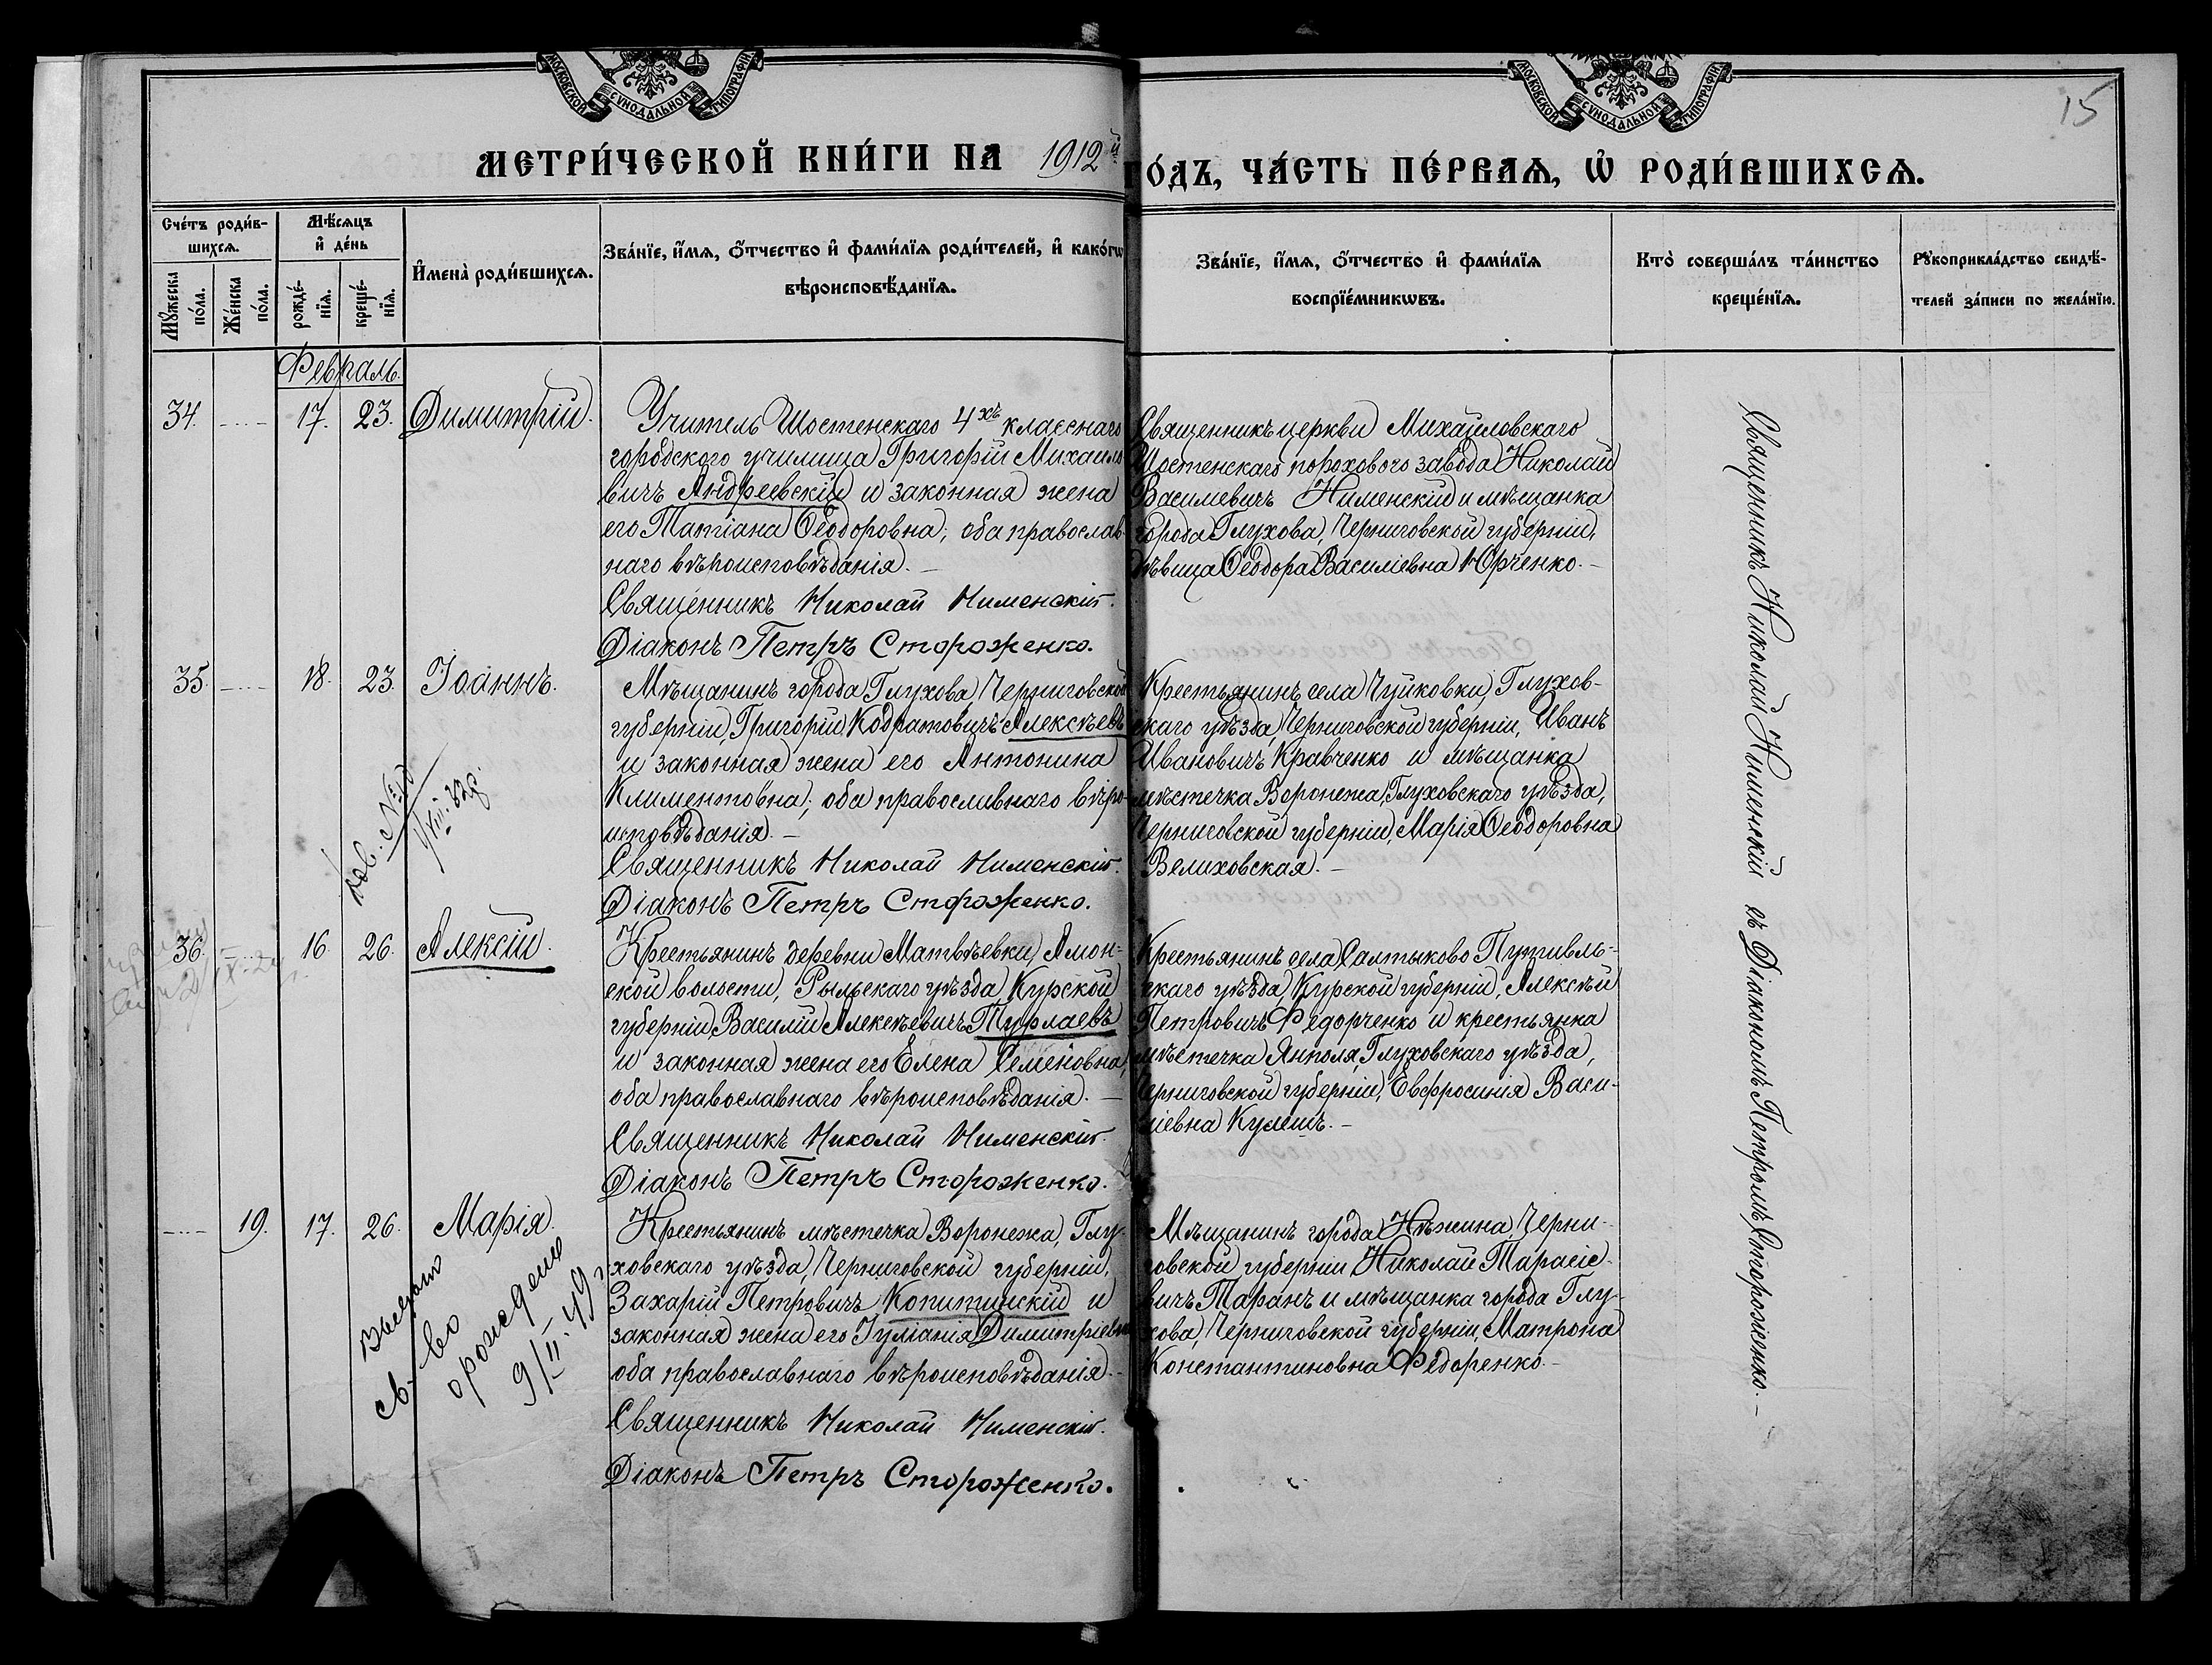 МОСКОВСКОЙ СѴНОДАЛЬНОЙ ТИПОГРАФІИ
МОСКОВСКОЙ СѴНОДАЛЬНОЙ ТИПОГРАФІИ
15
МЕТРИ́ЧЕСКОЙ КНИ́ГИ НА 1912й
ГО́ДЪ, ЧА́СТЬ ПЕ́РВАѦ, Ѡ҆ РОДИ́ВШИХСѦ.
Сче́тъ роди́в-
шихсѧ.
Мꙋ́жеска по́ла.
Же́нска по́ла.
Мѣ́сѧцъ
и҆ де́нь
рожде́-
нїѧ.
креще́-
нїѧ.
И҆мена̀ роди́вшихсѧ.
Зва́нїе, и҆́мѧ, ѻ҆́тчество и҆ фами́лїѧ роди́телей, и҆ како́гѡ
вѣроисповѣ́данїѧ.
Зва́нїе, и҆́мѧ, ѻ҆́тчество и҆ фами́лїѧ
воспрїе́мникѡвъ.
Кто̀ соверша́лъ та́инство
креще́нїѧ.
Рꙋкоприкла́дство свидѣ́-
телей за́писи по жела́нїю.
Февраль.
34. 17. 23. Димитрій.
Учитель Шостенскаго 4хъ класснаго
городского училища Григорій Михайло
вичъ Андреевскій и законная жена
его Татіана Ѳеодоровна; оба православ-
наго вѣроисповѣданія.
Священникъ Николай Нименскій.
Діаконъ Петръ Стороженко.
Священникъ церкви Михайловскаго
Шостенскаго порохового завода Николай
Василіевичъ Нименскій и мѣщанка
города Глухова, Черниговской губерніи,
дѣвица Ѳеодора Василіевна Юрченко.
35. 18. 23. Іоаннъ.
Мѣщанинъ города Глухова, Черниговской
губерніи, Григорій Кодратовичъ Алексѣевъ
и законная жена его Антонина
Климентовна; оба православнаго вѣро-
исповѣданія.
Священникъ Николай Нименскій.
Діаконъ Петръ Стороженко.
Крестьянинъ села Чуйковки, Глухов-
скаго уѣзда, Черниговской губерніи, Иванъ
Ивановичъ Кравченко и мѣщанка
мѣстечка Воронежа, Глуховскаго уѣзда,
Черниговской губерніи, Марія Ѳеодоровна
Велиховская.
36. 16. 26. Алексій.
Крестьянинъ деревни Матвѣевки, Амон-
ской волости, Рыльскаго уѣзда, Курской
губерніи, Василій Алексѣевичъ Турлаевъ
и законная жена его Елена Семеновна,
оба православнаго вѣроисповѣданія.
Священникъ Николай Нименскій.
Діаконъ Петръ Стороженко.
Крестьянинъ села Салтыково Путивль-
скаго уѣзда, Курской губерніи, Алексѣй
Петровичъ Федорченко и крестьянка
мѣстечка Янполя, Глуховскаго уѣзда,
Черниговской губерніи, Евфросинія Васи-
ліевна Кулешъ.
19. 17. 26. Марія.
Выслано
св-во
о рожденіи
9/II-49
Крестьянинъ мѣстечка Воронежа, Глу-
ховскаго уѣзда, Черниговской губерніи,
Захарій Петровичъ Копитинскій и
законная жена его Іуліанія Димитріевна
оба православнаго вѣроисповѣданія.
Священникъ Николай Нименскій.
Діаконъ Петръ Стороженко.
Мѣщанинъ города Нѣжина, Черни-
говской губерніи, Николай Тарасіе-
вичъ Таранъ и мѣщанка города Глу-
хова, Черниговской губерніи, Матрона
Константиновна Федоренко.
Священникъ Николай Нименскій съ Діакономъ Петромъ Стороженко.